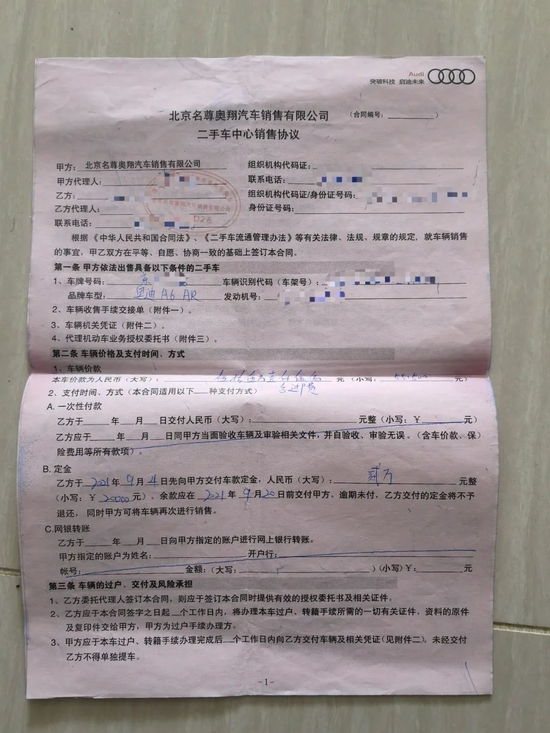 Audi
突破科技 启迪未来
北京名尊奥翔汽车销售有限公司
(合同编号:
二手车中心销售协议
甲方:北京名尊奥翔汽车销售有限公司 组织机构代码证:
甲方代理人: 联系电话:
乙方: 组织机构代码证/身份证号码:
乙方代理人: 身份证号码:
联系电话:
根据《中华人民共和国合同法》、《二手车流通管理办法》等有关法律、法规、规章的规定,就车辆销售
的事宜,甲乙双方在平等、自愿、协商一致的基础上签订本合同。
第一条 甲方依法出售具备以下条件的二手车
1、车牌号码: 车辆识别代码(车架号):
品牌车型:奥迪 A6 AR 发动机号:
2、车辆收售手续交接单(附件一)。
3、车辆机关凭证(附件二)。
4、代理机动车业务授权委托书(附件三)。
第二条 车辆价格及支付时间、方式
1、车辆价款
本车价款为人民币(大写): 元(小写:
2、支付时间、方式(本合同适用以下 种支付方式) 含过户费
A. 一次性付款
乙方于 年 月 日交付人民币(大写): 元整(小写:¥ 元)
乙方应于 年 月 日同甲方当面验收车辆及审验相关文件,并自验收、审验无误。(含车价款、保
险费用等所有款项)。
B. 定金
乙方于 2021 年 9 月 4 日先向甲方交付车款定金,人民币(大写): 贰万 元整
(小写:¥ 20000 元),余款应在 2021 年 9 月 20 日前交付甲方,逾期未付,乙方交付的定金将不予
退还,同时甲方可将车辆再次进行销售。
C.网银转账
乙方于 年 月 日向甲方指定的账户进行网上银行转账。
甲方指定的账户为姓名: 开户行:
帐号: 金额:(大写: )(小写):¥ 元
第三条 车辆的过户、交付及风险承担
1、乙方委托代理人签订本合同,则应于签订本合同时提供有效的授权委托书及相关证件。
2、乙方应于本合同签字之日起 个工作日内,将办理本车过户、转籍手续所需的一切有关证件、资料的原件
及复印件交给甲方,甲方为过户手续办理方。
3、甲方应于本车过户、转籍手续办理完成后 个工作日内向乙方交付车辆及相关凭证(见附件二),未经交付
乙方不得单独提车。
-1-